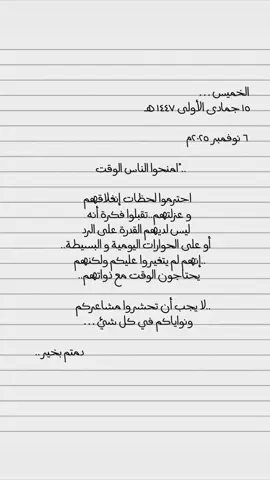 الخميس ...
١٥ جمادى الأولى ١٤٤٧ هـ
٦ نوفمبر ٢٠٢٥م
.."امنحوا الناس الوقت
احترموا لحظات إنغلاقهم
و عزلتهم..تقبلوا فكرة أنه
ليس لديهم القدرة على الرد
أو على الحوارات اليومية و البسيطة..
..إنهم لم يتغيروا عليكم ولكنهم
يحتاجون الوقت مع ذواتهم..
..لا يجب أن تحشروا مشاعركم
ونواياكم في كل شيء ...
دمتم بخير..